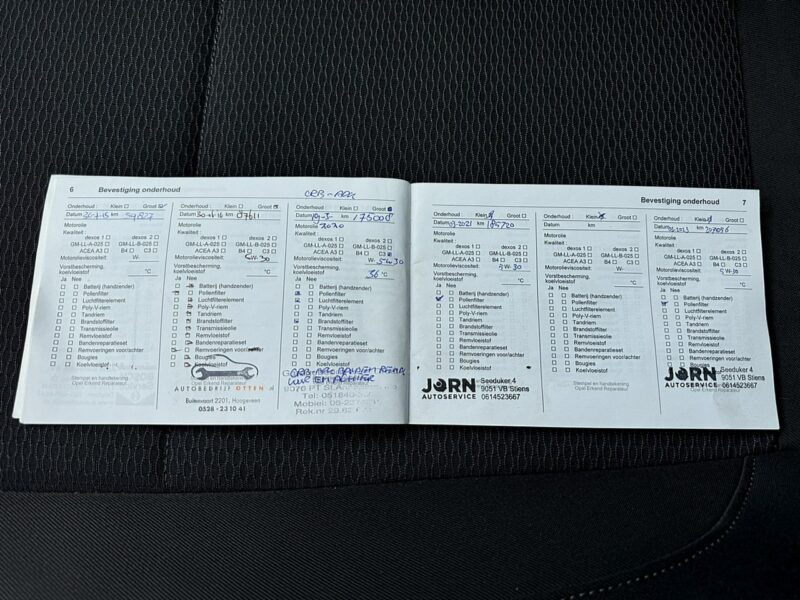 6 Bevestiging onderhoud
Onderhoud : Klein Groot
Datum km
Motorolie
Kwaliteit :
dexos 1 dexos 2
GM-LL-A-025 GM-LL-B-025
ACEA A3 B4 C3
Motorolieviscositeit: W-
Vorstbescherming,
koelvloeistof °C
Ja Nee
Batterij (handzender)
Pollenfilter
Luchtfilterelement
Poly-V-riem
Tandriem
Brandstoffilter
Transmissieolie
Remvloeistof
Bandenreparatieset
Remvoeringen voor/achter
Bougies
Koelvloeistof
Stempel en handtekening
Opel Erkend Reparateur
Onderhoud : Klein Groot
Datum km
Motorolie
Kwaliteit :
dexos 1 dexos 2
GM-LL-A-025 GM-LL-B-025
ACEA A3 B4 C3
Motorolieviscositeit: 5W-30
Vorstbescherming,
koelvloeistof °C
Ja Nee
Batterij (handzender)
Pollenfilter
Luchtfilterelement
Poly-V-riem
Tandriem
Brandstoffilter
Transmissieolie
Remvloeistof
Bandenreparatieset
Remvoeringen voor/achter
Bougies
Koelvloeistof
Opel Erkend Reparateur
AUTOBEDRIJF OTTEN
Buitenvaart 2201, Hoogeveen
0528 - 23 10 41
Onderhoud : Klein Groot
Datum km
2020
Motorolie
Kwaliteit :
dexos 1 dexos 2
GM-LL-A-025 GM-LL-B-025
ACEA A3 B4 C3
Motorolieviscositeit: 5W-30
Vorstbescherming,
koelvloeistof 36 °C
Ja Nee
Batterij (handzender)
Pollenfilter
Luchtfilterelement
Poly-V-riem
Tandriem
Brandstoffilter
Transmissieolie
Remvloeistof
Bandenreparatieset
Remvoeringen voor/achter
Bougies
Koelvloeistof
Bevestiging onderhoud 7
Onderhoud : Klein Groot
Datum 2021 km 185720
Motorolie
Kwaliteit :
dexos 1 dexos 2
GM-LL-A-025 GM-LL-B-025
ACEA A3 B4 C3
Motorolieviscositeit: 5W-30
Vorstbescherming,
koelvloeistof °C
Ja Nee
Batterij (handzender)
Pollenfilter
Luchtfilterelement
Poly-V-riem
Tandriem
Brandstoffilter
Transmissieolie
Remvloeistof
Bandenreparatieset
Remvoeringen voor/achter
Bougies
Koelvloeistof
JORN AUTOSERVICE
Seeduker 4
9051 VB Stiens
0614523667
Onderhoud : Klein Groot
Datum km
Motorolie
Kwaliteit :
dexos 1 dexos 2
GM-LL-A-025 GM-LL-B-025
ACEA A3 B4 C3
Motorolieviscositeit: W-
Vorstbescherming,
koelvloeistof °C
Ja Nee
Batterij (handzender)
Pollenfilter
Luchtfilterelement
Poly-V-riem
Tandriem
Brandstoffilter
Transmissieolie
Remvloeistof
Bandenreparatieset
Remvoeringen voor/achter
Bougies
Koelvloeistof
Stempel en handtekening
Opel Erkend Reparateur
Onderhoud : Klein Groot
Datum km
Motorolie
Kwaliteit :
dexos 1 dexos 2
GM-LL-A-025 GM-LL-B-025
ACEA A3 B4 C3
Motorolieviscositeit: 5W-30
Vorstbescherming,
koelvloeistof °C
Ja Nee
Batterij (handzender)
Pollenfilter
Luchtfilterelement
Poly-V-riem
Tandriem
Brandstoffilter
Transmissieolie
Remvloeistof
Bandenreparatieset
Remvoeringen voor/achter
Bougies
Koelvloeistof
JORN AUTOSERVICE
Seeduker 4
9051 VB Stiens
0614523667